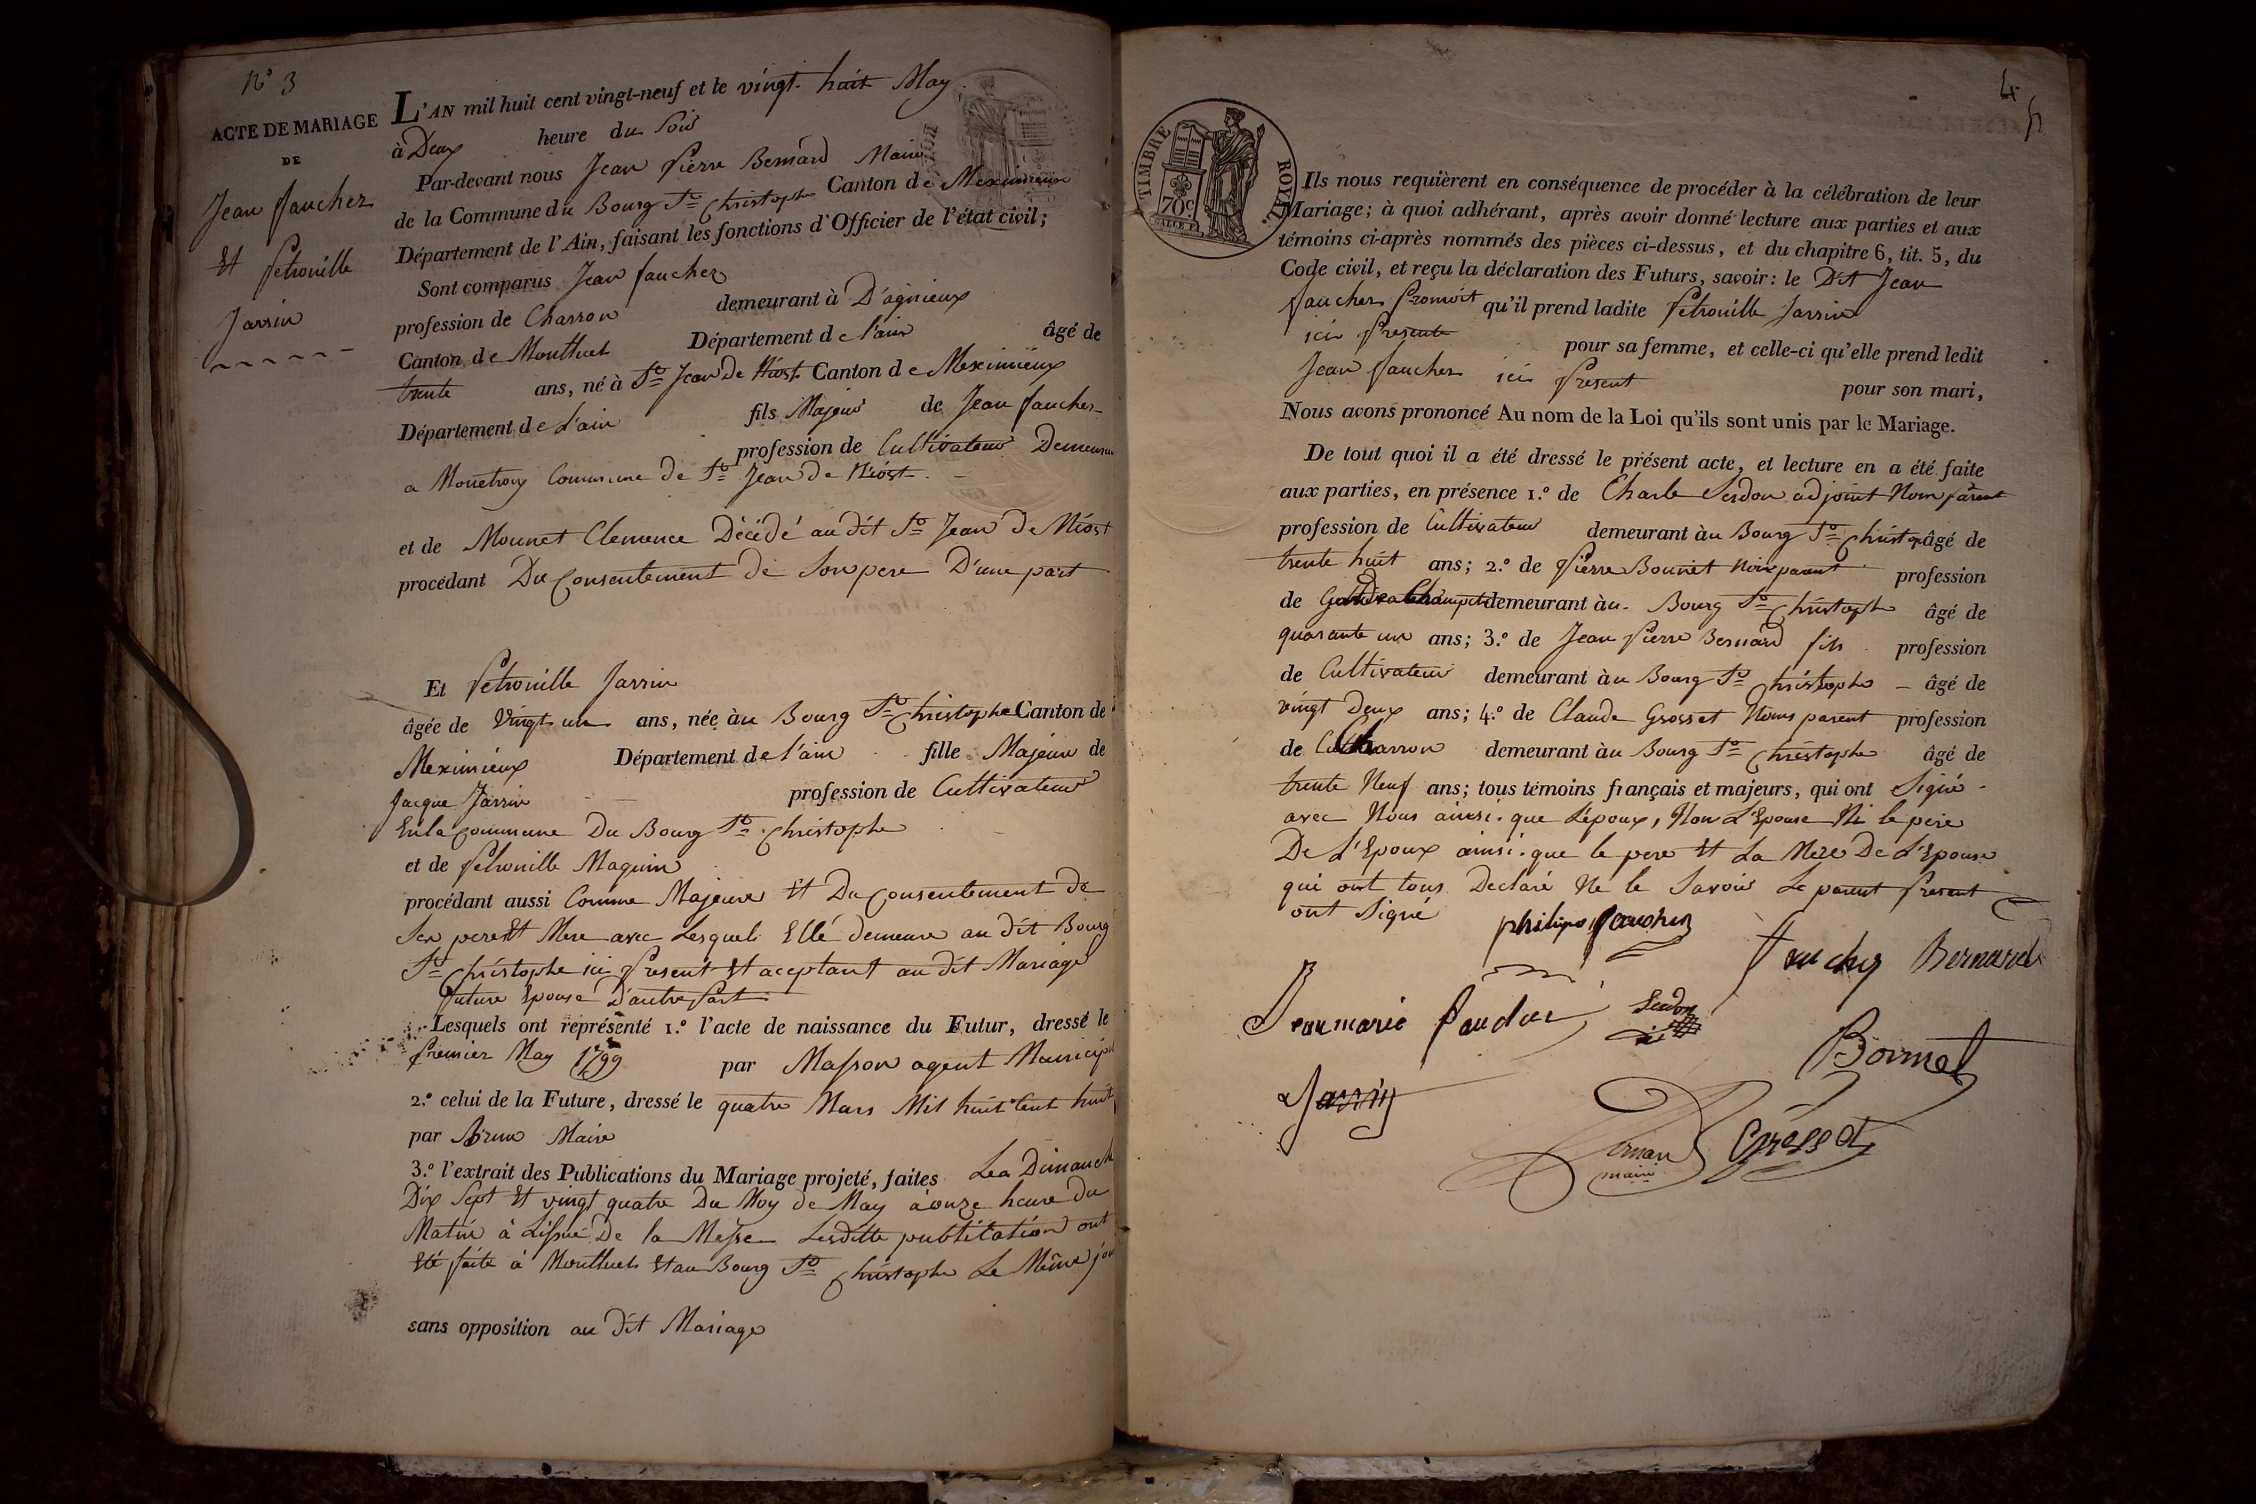 N° 3
ACTE DE MARIAGE
DE
Jean faucher
Et Petronille
Jarrin
L'AN mil huit cent vingt-neuf et le vingt huit May
à Deux heure du Soir
Par-devant nous Jean Pierre Bernard Maire
de la Commune du Bourg St Christophe Canton de Meximieux
Département de l'Ain, faisant les fonctions d'Officier de l'état civil;
Sont comparus Jean faucher
profession de Charron demeurant à D'agnieux
Canton de Montluel Département de l'ain âgé de
trente ans, né à St Jean de Niost Canton de Meximieux
Département de L'ain fils Majeur de Jean faucher
profession de Cultivateur Demeurant
a Commune de St Jean de Niost
et de Monnet Clemence Décédé au dit St Jean de Niost
procédant Du Consentement de Son pere D'une part
Et Petronille Jarrin
âgée de Vingt un ans, née àu Bourg St Christophe Canton de
Meximieux Département de l'ain fille Majeur de
Jacque Jarrin profession de Cultivateur
En la Commune Du Bourg St Christophe
et de Petronille Maguin
procédant aussi Comme Majeure Et Du Consentement de
Ses pere Et Mere avec Lesquels Ellé demeure au dit Bourg
St Christophe ici Present Et aceptant au dit Mariage
future Epouse D'autre Part
Lesquels ont représenté 1.° l'acte de naissance du Futur, dressé le
Premier May 1799 par Masson agent Municipal
2.° celui de la Future, dressé le quatre Mars Mil huit Cent huit
par Maire
3.° l'extrait des Publications du Mariage projeté, faites Les Dimanche
Dix Sept Et vingt quatre Du Moy de May à onze heure du
Matin à L'issue De la Messe Lesditte publication ont
Eté faite à Montluel Et au Bourg St Christophe Le Même jour
sans opposition au dit Mariage
4
TIMBRE ROYAL
70c
Ils nous requièrent en conséquence de procéder à la célébration de leur
Mariage; à quoi adhérant, après avoir donné lecture aux parties et aux
témoins ci-après nommés des pièces ci-dessus, et du chapitre 6, tit. 5, du
Code civil, et reçu la déclaration des Futurs, savoir: le Dit Jean
faucher Promoit qu'il prend ladite Petronille Jarrin
ici Presente pour sa femme, et celle-ci qu'elle prend ledit
Jean faucher ici Present pour son mari,
Nous avons prononcé Au nom de la Loi qu'ils sont unis par le Mariage.
De tout quoi il a été dressé le présent acte, et lecture en a été faite
aux parties, en présence 1.° de Charle Serdon adjoint Non parent
profession de Cultivateur demeurant àu Bourg St Christophe âgé de
trente huit ans; 2.° de Pierre Bonnet Non parent profession
de Garde Champetre demeurant àu Bourg St Christophe âgé de
quarante un ans; 3.° de Jean Pierre Bernard fils profession
de Cultivateur demeurant àu Bourg St Christophe âgé de
vingt Deux ans; 4.° de Claude Grosset Nons parent profession
de Charron demeurant àu Bourg St Christophe âgé de
trente Neuf ans; tous témoins français et majeurs, qui ont Signé
avec Nous ainsi que L'époux, Non L'Epouse Ni le pere
De L'Epoux ainsi que le pere Et La Mere De L'Epouse
qui ont tous Declaré Ne le Savoir Le parent Present
ont Signé
philipe faucher
faucher Bernard
Jean marie
Serdon
Bonnet
Jarrin
Bernard Grosset
maire